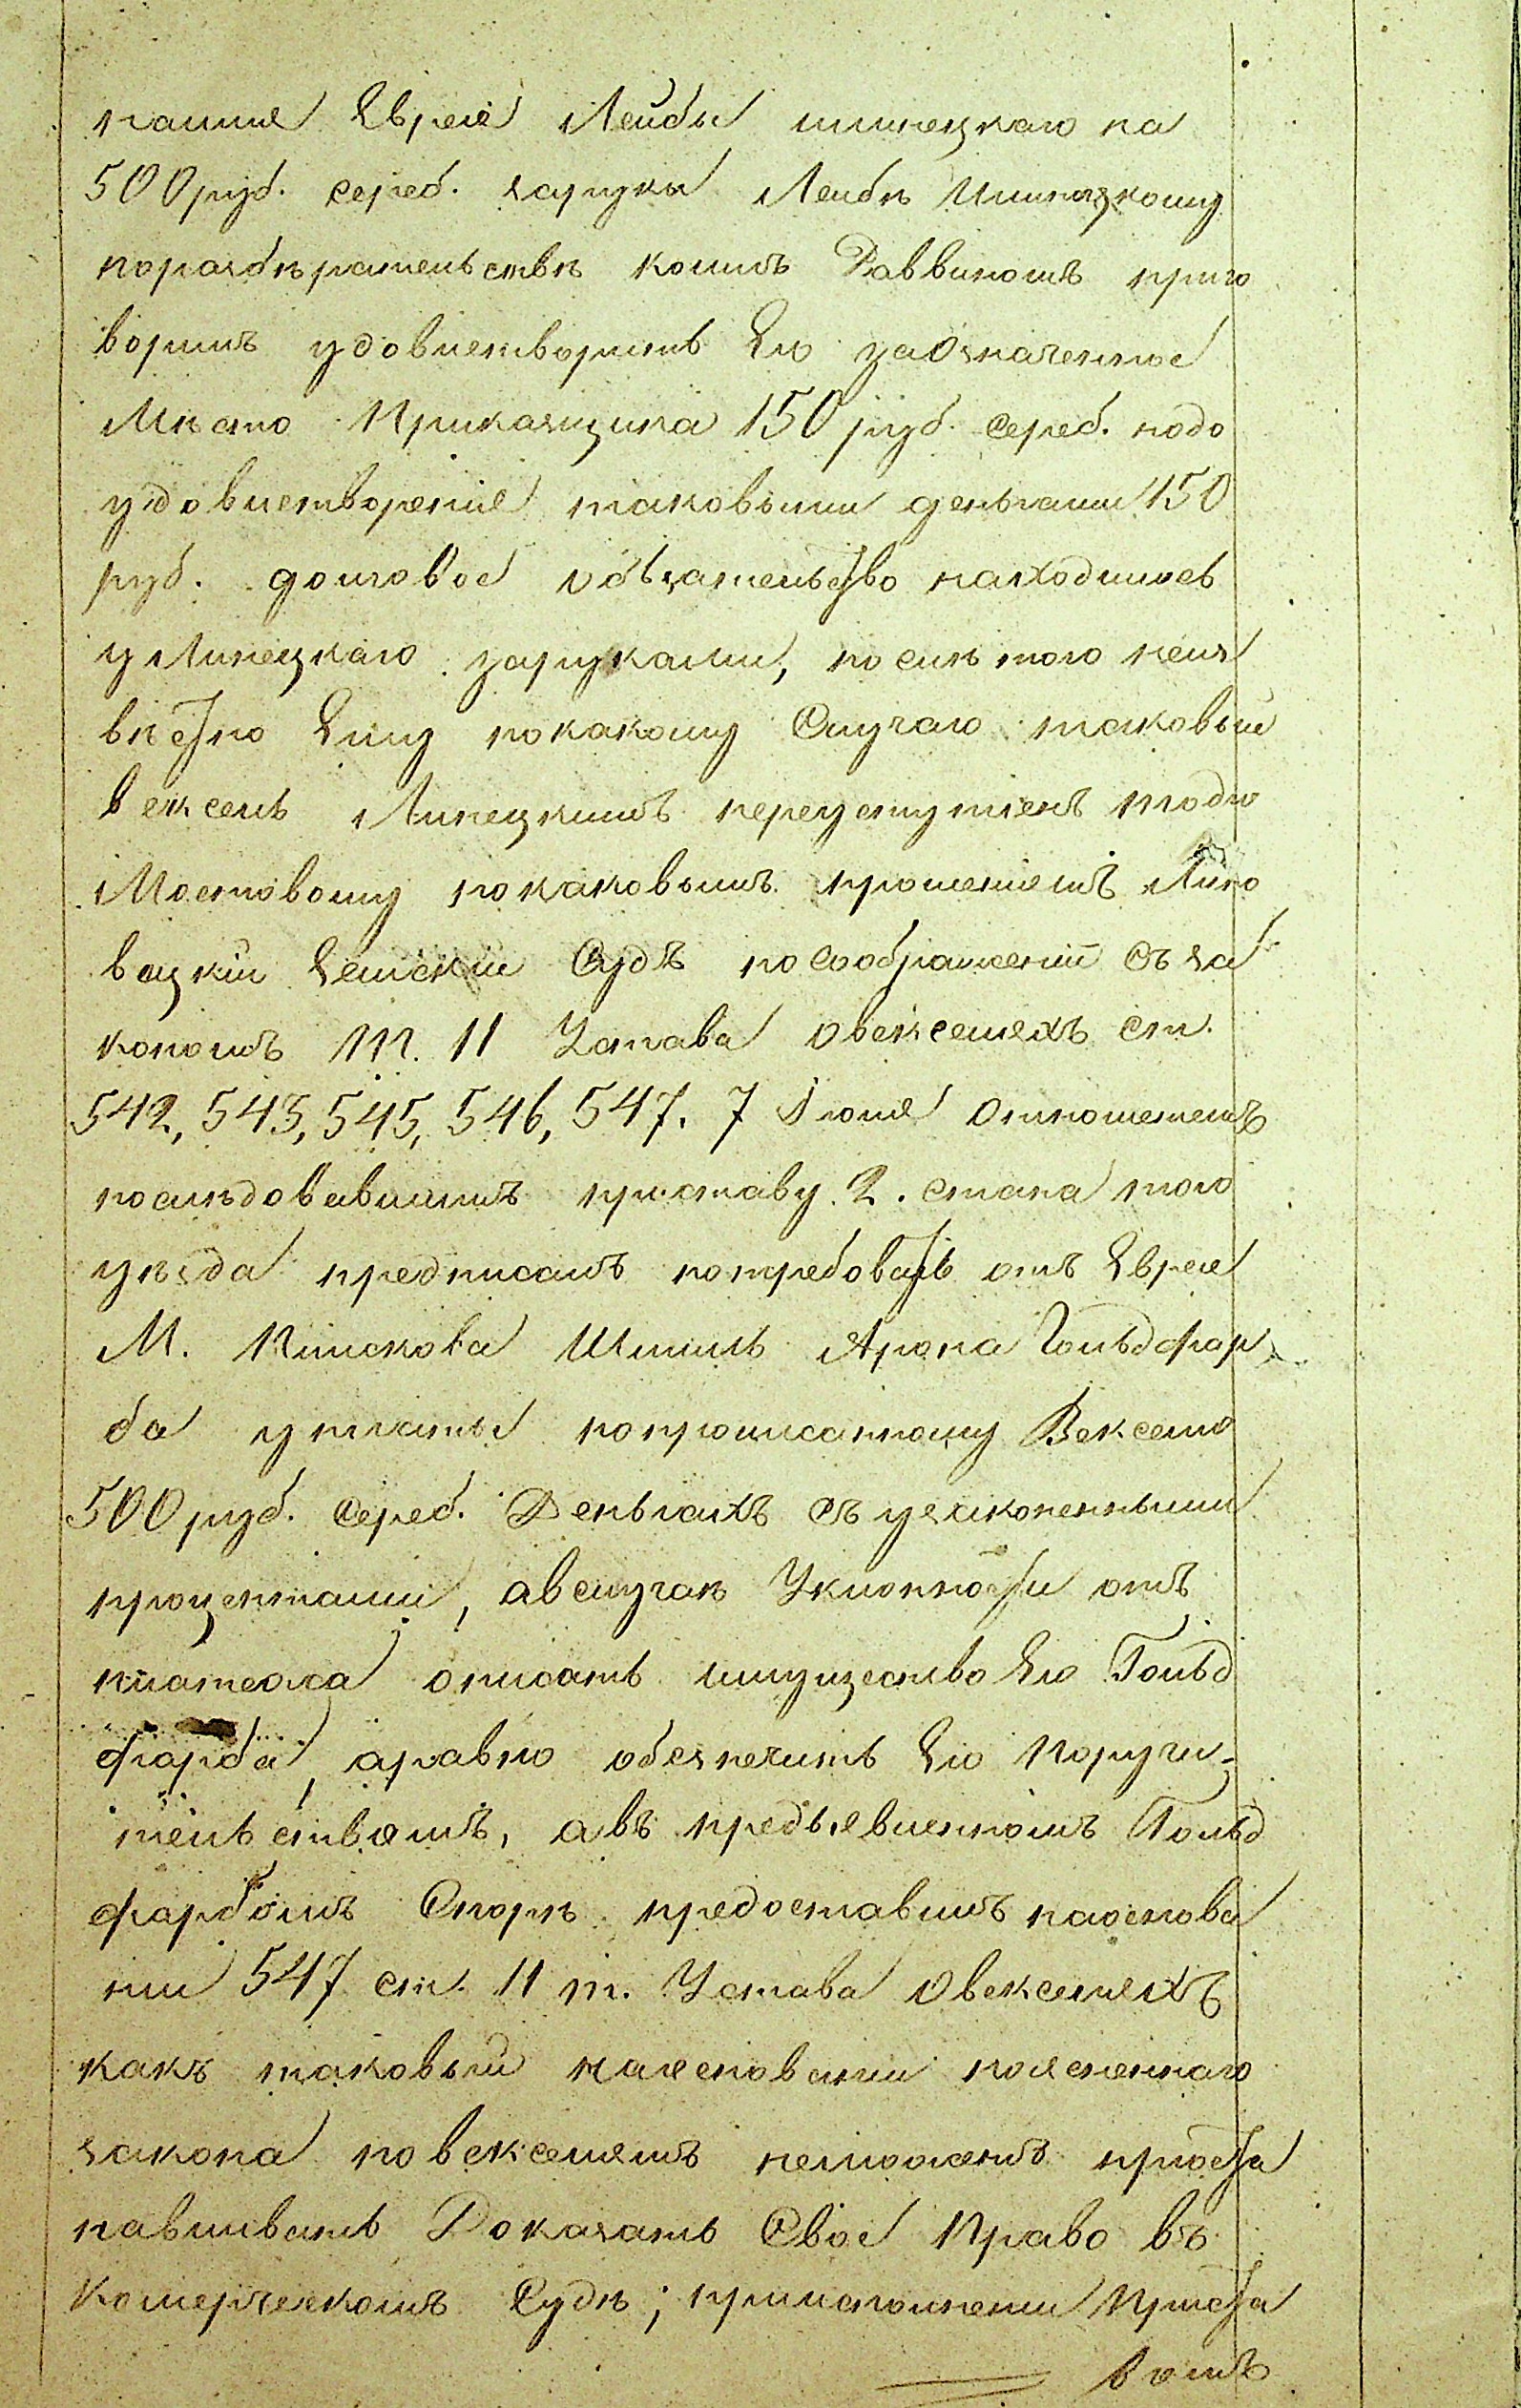 пания Еврея Лейбы Липецкаго на
500 руб. сереб. заруки Лейбѣ Липецкому
поразбѣрательствѣ коимъ Раввиномъ приго
ворилъ удовлетворить Его заозначенное
Мѣсто Прикащика 150 руб. сереб. подо
удовлетворение таковыми деньгами 150
руб. долговое обѣзательство находилось
у Липецкаго заруками, послѣ того неиз
вѣстно Ему покакому Случаю таковый
вексель Липецкимъ переуступленъ жидю
Мостовому покаковымъ прошениемъ Липо
вецкій Земскій Судъ посоображеній съ за
кономъ т. 11 Устава овекселяхъ ст.
542, 543, 545, 546, 547. 7 Іюля отношениемъ
послѣдовавшимъ приставу 2. стана того
уѣзда предписалъ потребовать отъ Еврея
М. Пискова Шмиль Арона Гольдфар
ба уплаты попрописанному Векселю
500 руб. сереб. Деньгахъ съ узаконенными
процентами, авслучаѣ Уклонности отъ
платежа описать имущество Его Гольд
фарба, аравно обезпечить Его Поручи-
тельствомъ, авъ предъявленномъ Гольд
фарбомъ Спорѣ предоставилъ наоснова
нии 547 ст. 11 т. Устава овекселяхъ
какъ таковый наоснования поясненнаго
закона повекселямъ неможетъ приоста
навливать Доказать Свое Право въ
Комерческомъ Судѣ; приисполнении Приста
вомъ